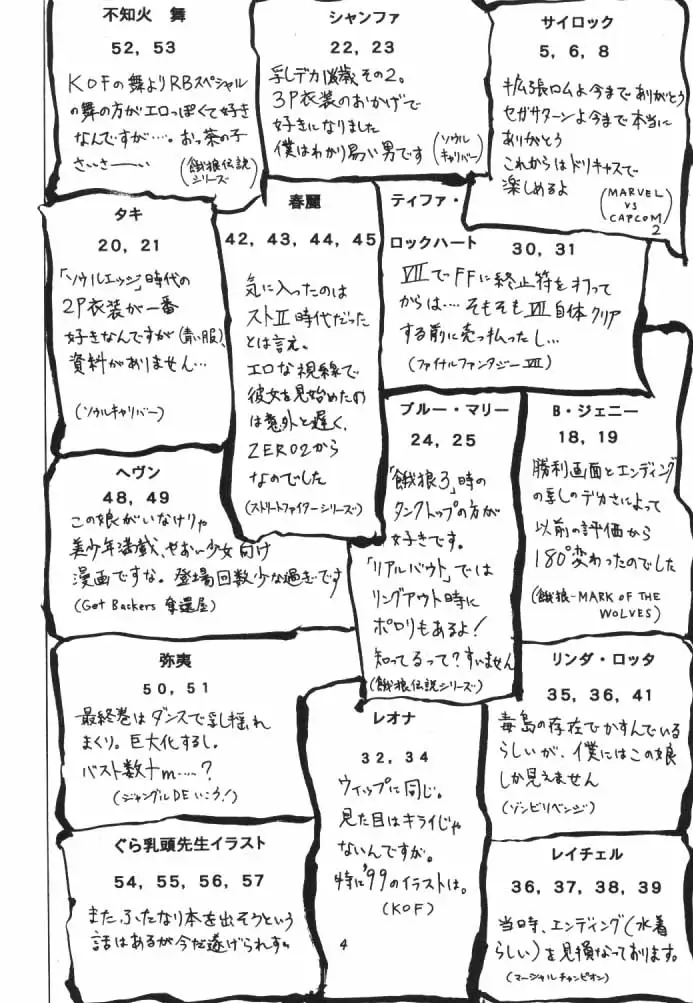 不知火 舞
52, 53
KOFの舞よりRBスペシャル
の舞の方がエロっぽくて好き
なんですが…。おっ茶の子
さいさーーい
(餓狼伝説
シリーズ)
シャンファ
22, 23
乳しデカ 歳その2。
3P衣装のおかげで
好きになりました
僕はわかり易い男です
(ソウル
キャリバー)
サイロック
5, 6, 8
拡張ロムよ今までありがとう
セガサターンよ今まで本当に
ありがとう
これからはドリキャスで
楽しめるよ
(MARVEL
VS
CAPCOM
2
タキ
20, 21
「ソウルエッジ」時代の
2P衣装が一番
好きなんですが(青い服)、
資料がありません…
(ソウルキャリバー)
春麗
42, 43, 44, 45
気に入ったのは
ストⅡ時代だった
とは言え、
エロな視線で
彼女を見始めたの
は意外と遅く、
ZERO2から
なのでした
(ストリートファイターシリーズ)
ティファ・
ロックハート
30, 31
ⅦでFFに終止符を打って
からは…そもそもⅦ自体クリア
する前に売っ払ったし…
(ファイナルファンタジーⅦ)
ブルー・マリー
24, 25
「餓狼3」時の
タンクトップの方が
好きです。
「リアルバウト」では
リングアウト時に
ポロリもあるよ!
知ってるって?すいません
(餓狼伝説シリーズ)
B・ジェニー
18, 19
勝利画面とエンディング
の乳しのデカさによって
以前の評価から
180°変わったのでした
(餓狼-MARK OF THE
WOLVES)
ヘヴン
48, 49
この娘がいなけりゃ
美少年満載、せおい少女向け
漫画ですな。登場回数少な過ぎです
(Get Backers 奪還屋)
弥夷
50, 51
最終巻はダンスで乳揺れ
まくり。巨大化するし。
バスト数十m……?
(ジャングルDEいこう!)
レオナ
32, 34
ウィップに同じ。
見た目はキライじゃ
ないんですが。
特に'99のイラストは。
(KOF)
リンダ・ロッタ
35, 36, 41
毒島の存在でかすんでいる
らしいが、僕にはこの娘
しか見えません
(ゾンビリベンジ)
ぐら乳頭先生イラスト
54, 55, 56, 57
また、ふたなり本を出そうという
話はあるが今だ遂げられず。
レイチェル
36, 37, 38, 39
当時、エンディング(水着
らしい)を見損なっております。
(マーシャルチャンピオン)
4